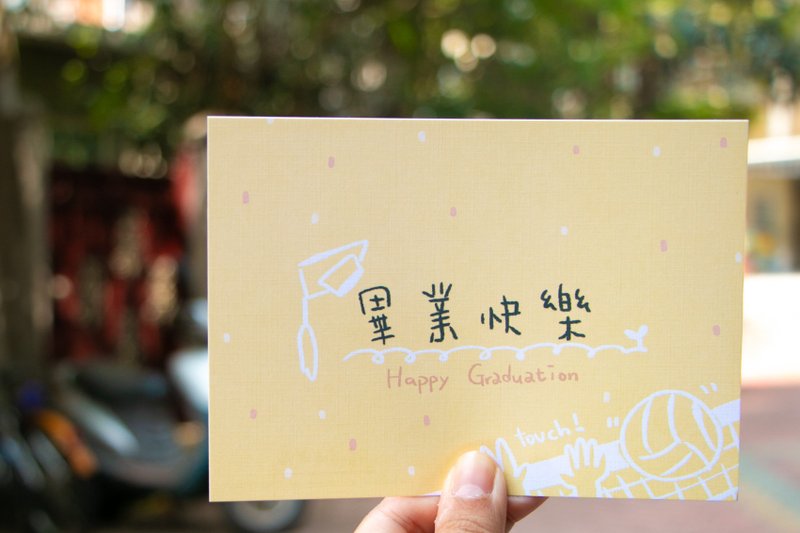 畢業快樂
Happy Graduation
touch!